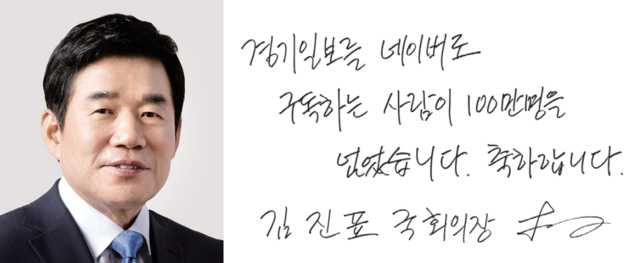 경기일보를 네이버로
구독하는 사람이 100만명을
넘었습니다. 축하합니다.
김진표 국회의장